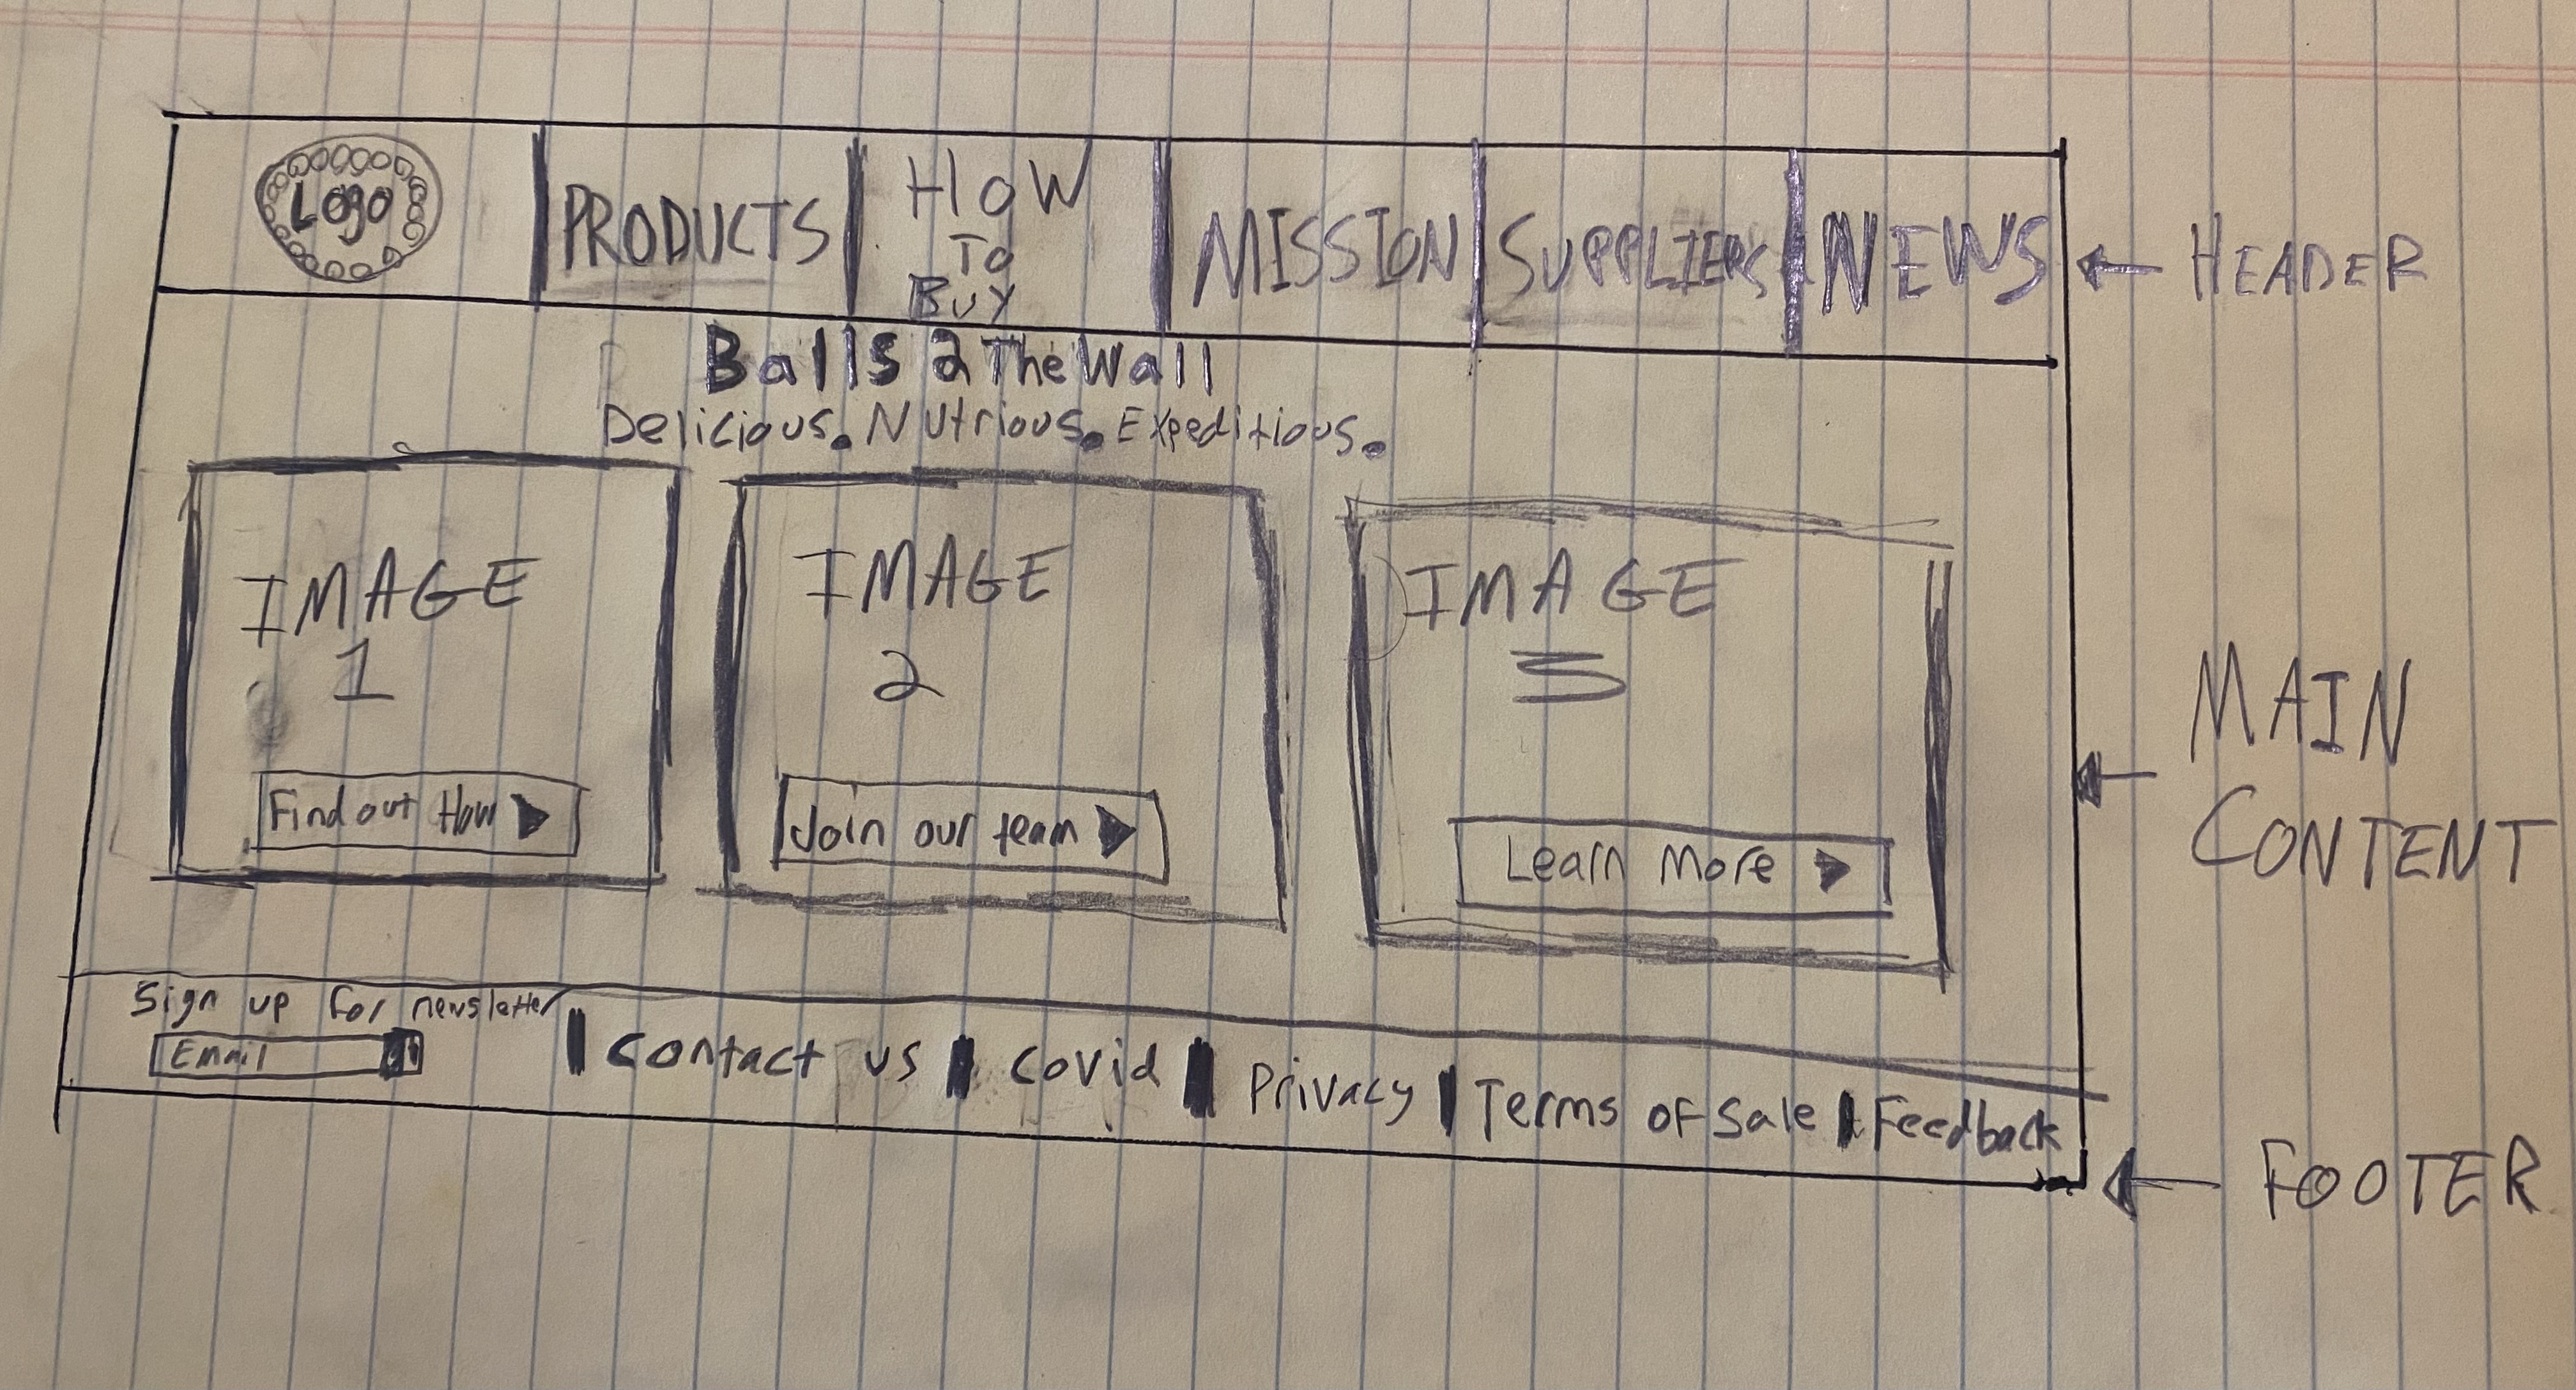 Logo
PRODUCTS
HOW
TO
BUY
MISSION
SUPPLIERS
NEWS
HEADER
Balls 2 The Wall
Delicious. Nutrious. Expeditious.
IMAGE
1
Find out How
IMAGE
2
Join our team
IMAGE
3
Learn More
MAIN
CONTENT
Sign up for newsletter
Email
Contact us
Covid
Privacy
Terms of Sale
Feedback
FOOTER